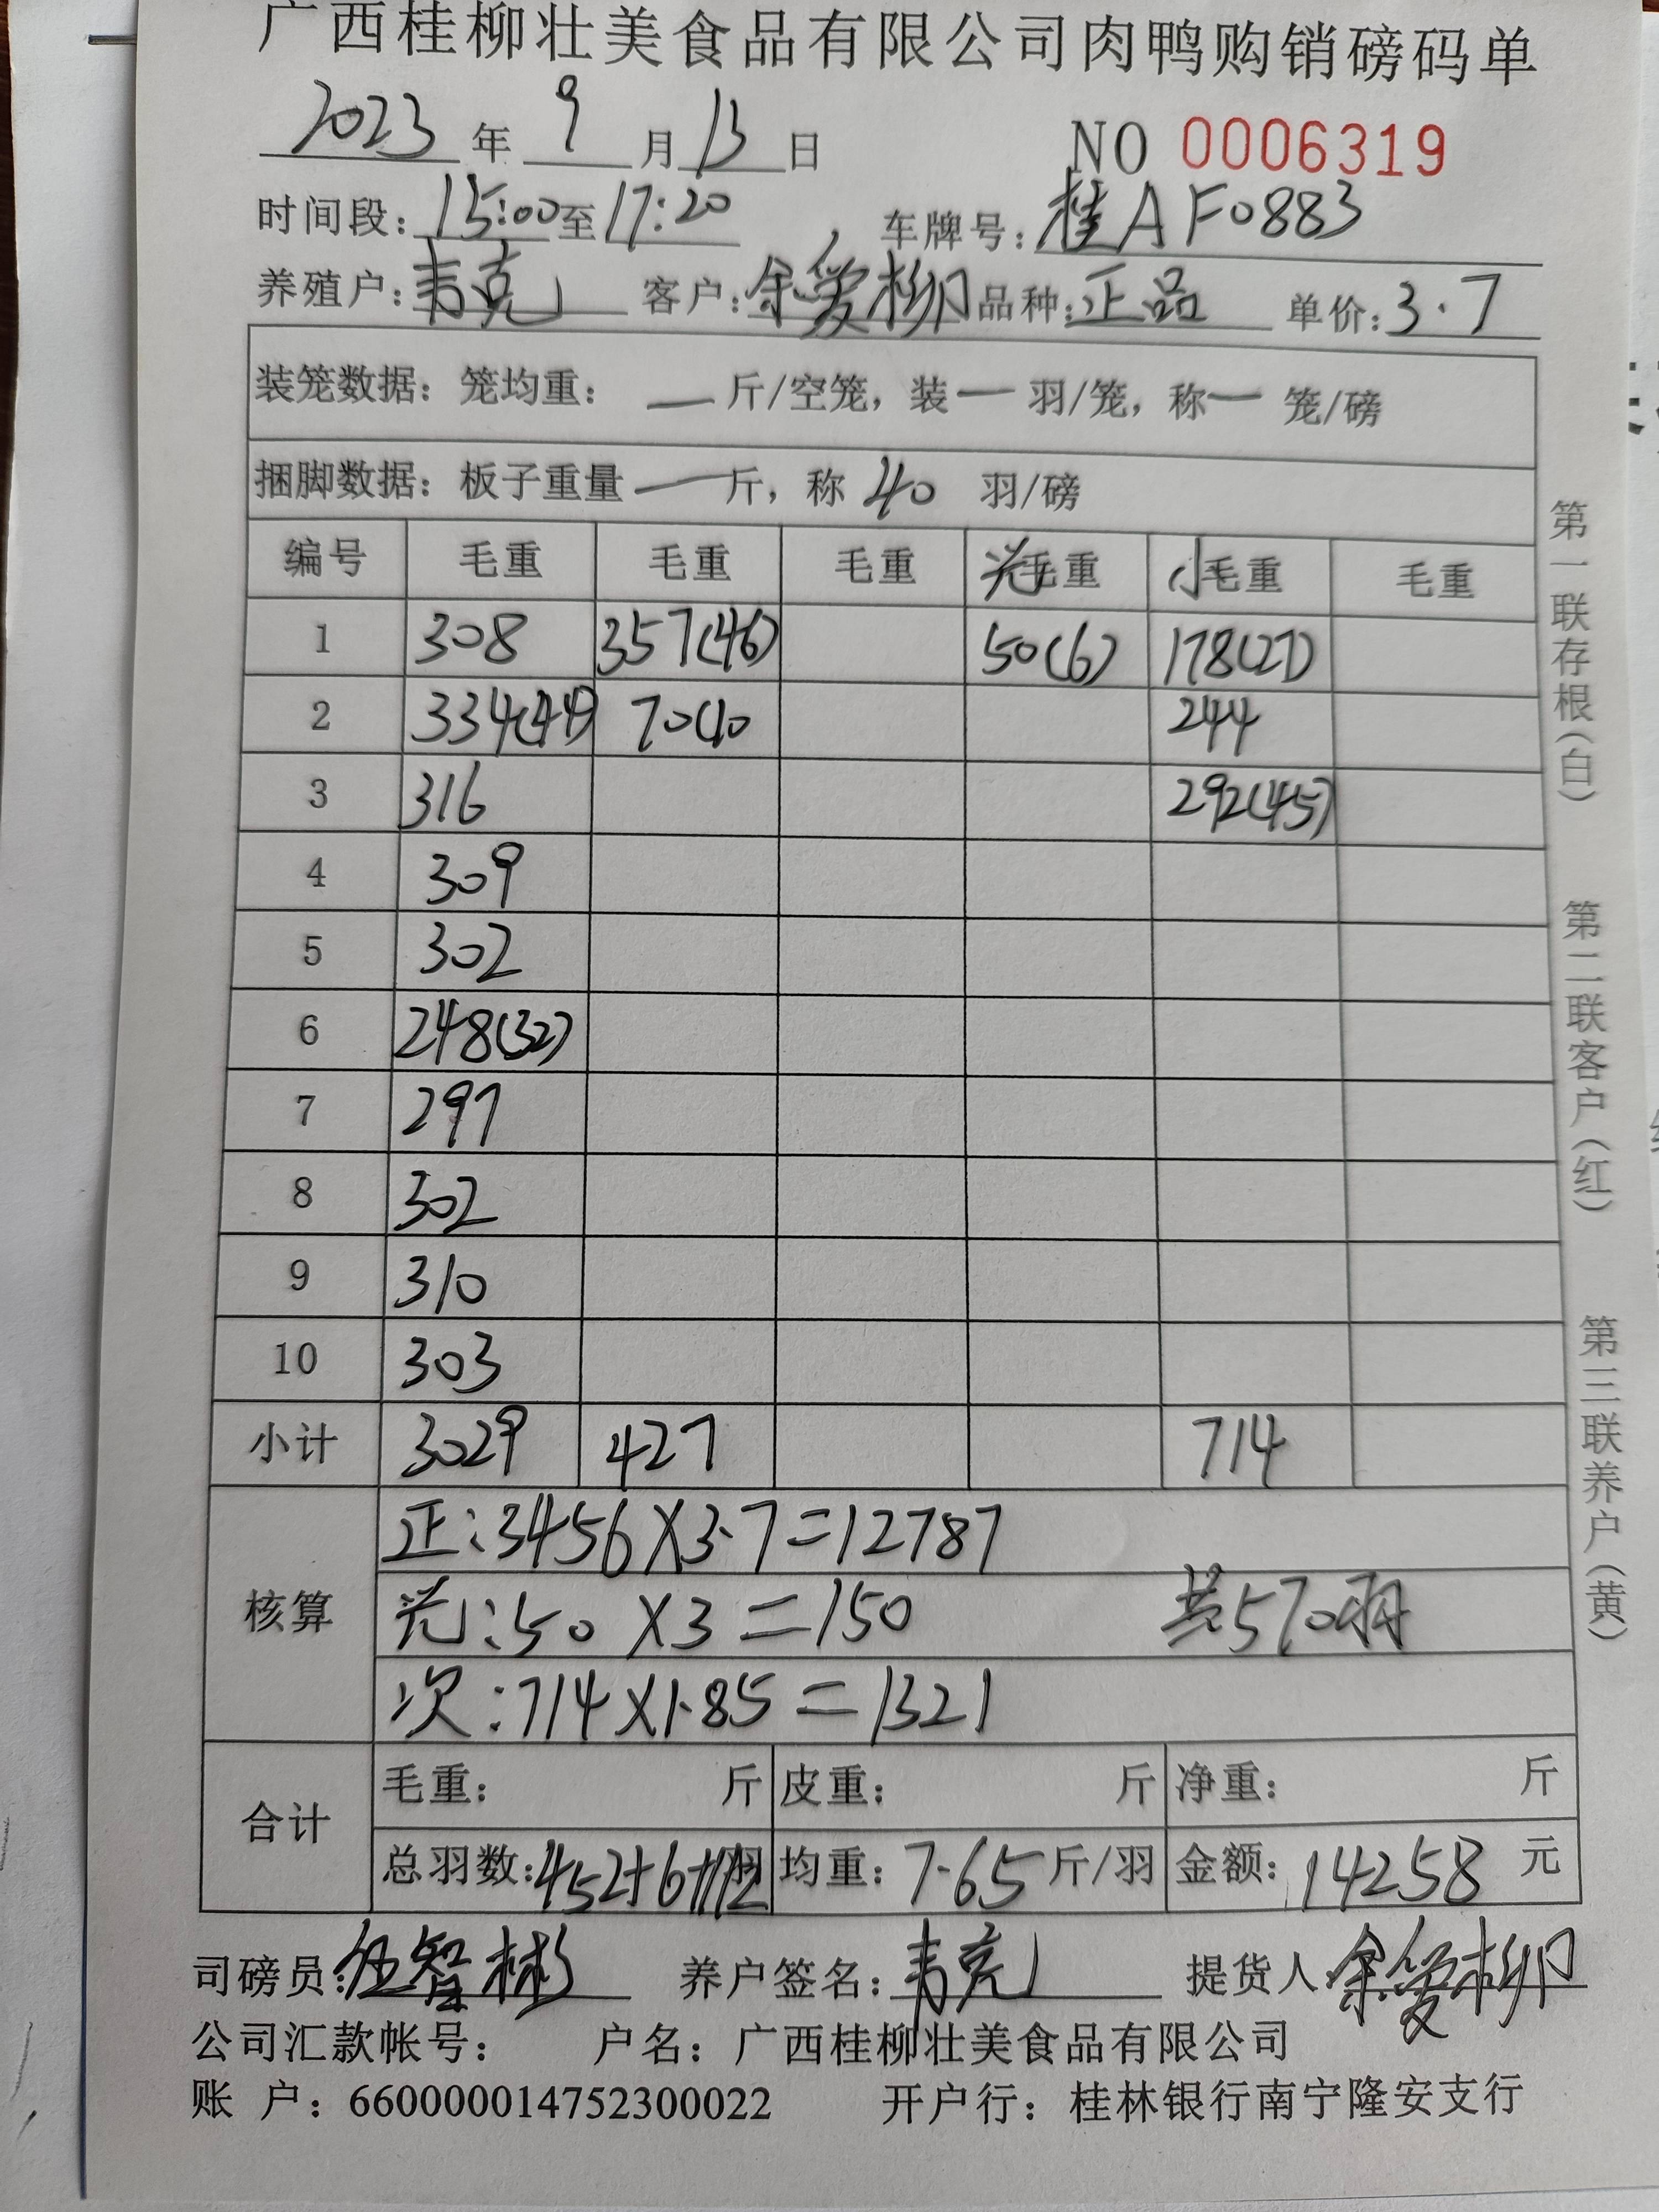 广西桂柳壮美食品有限公司肉鸭购销磅码单
2023 年 9 月 13 日 NO 0006319
时间段: 15:00 至 17:20 车牌号: 桂AF0883
养殖户: 韦克 客户: 余爱柳 品种: 正品 单价: 3.7
装笼数据: 笼均重: — 斤/空笼, 装 — 羽/笼, 称 — 笼/磅
捆脚数据: 板子重量 — 斤, 称 40 羽/磅
编号 毛重 毛重 毛重 光毛重 小毛重 毛重
1 308 357(46) 50(6) 178(27)
2 334(44) 70(10 244
3 316 292(45)
4 309
5 302
6 248(32)
7 297
8 302
9 310
10 303
小计 3029 427 714
核算 正:3456X3.7=12787
光:50X3=150 共570羽
次:714X1.85=1321
合计 毛重: 斤 皮重: 斤 净重: 斤
总羽数: 452+6+112 羽 均重: 7.65 斤/羽 金额: 14258 元
司磅员: 伍智彬 养户签名: 韦克 提货人 余爱柳
公司汇款帐号: 户名: 广西桂柳壮美食品有限公司
账 户: 660000014752300022 开户行: 桂林银行南宁隆安支行
第一联存根(白)
第二联客户(红)
第三联养户(黄)